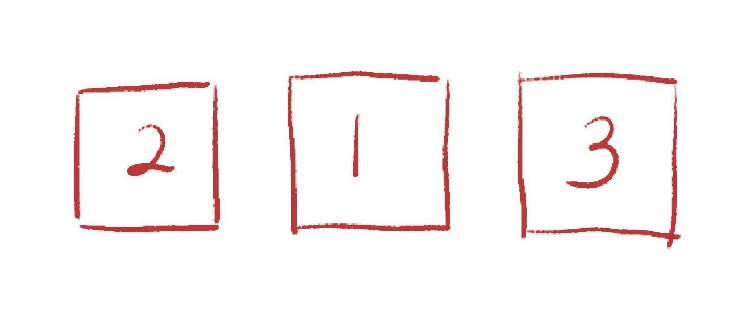 2 1 3